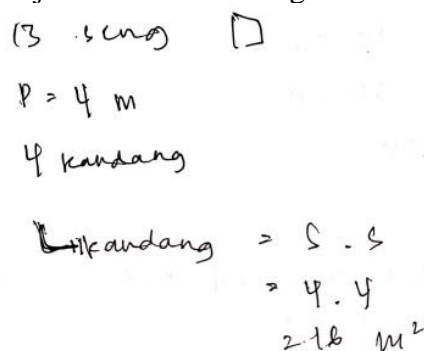 13 seng
P = 4 m
4 kandang
L kandang = s . s
= 4 . 4
= 16 m²